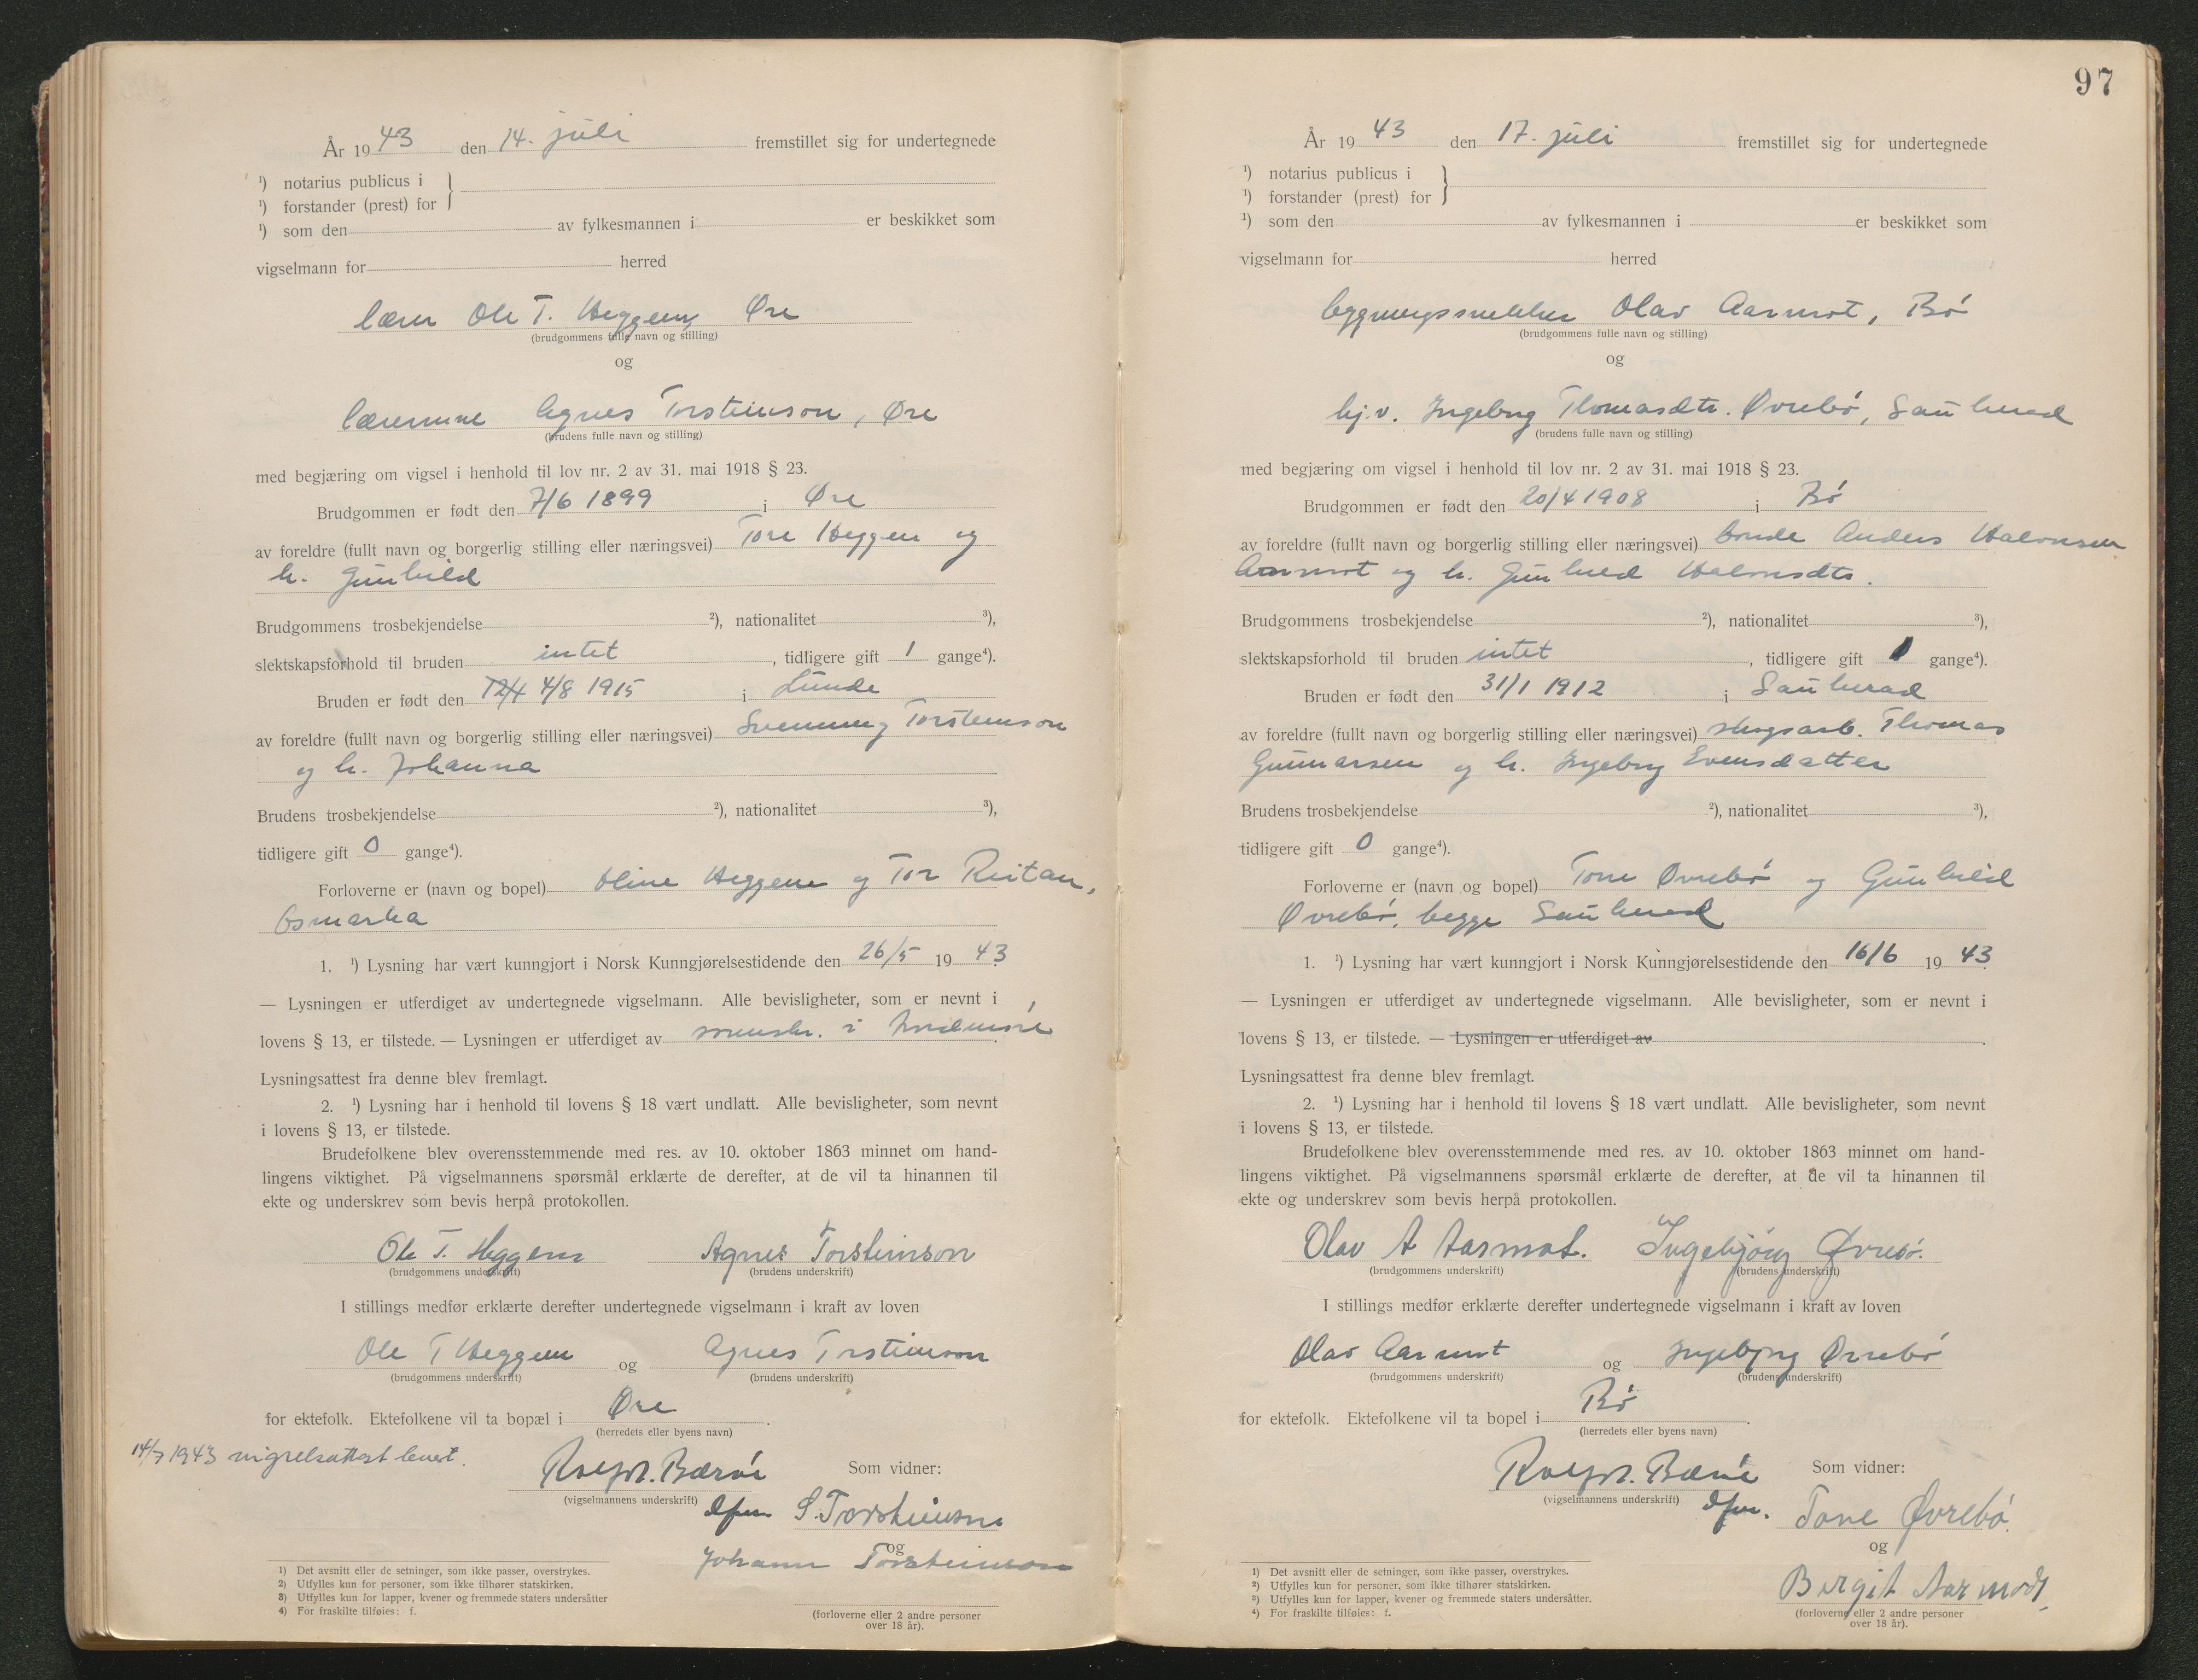 År 1943 den 14. juli fremstillet sig for undertegnede
¹) notarius publicus i
¹) forstander (prest) for
¹) som den av fylkesmannen i er beskikket som
vigselmann for herred
lærer Ole T. Heggem, Øre
(brudgommens fulle navn og stilling)
og
lærerinne Agnes Torsteinson, Øre
(brudens fulle navn og stilling)
med begjæring om vigsel i henhold til lov nr. 2 av 31. mai 1918 § 23.
Brudgommen er født den 7/6 1899 i Øre
av foreldre (fullt navn og borgerlig stilling eller næringsvei) Tore Heggem og
h. Gunhild
Brudgommens trosbekjendelse ²), nationalitet ³),
slektskapsforhold til bruden intet, tidligere gift 1 gange⁴).
Bruden er født den 4/8 1915 i Lunde
av foreldre (fullt navn og borgerlig stilling eller næringsvei) Svennung Torsteinson
og h. Johanna
Brudens trosbekjendelse ²), nationalitet ³),
tidligere gift 0 gange⁴).
Forloverne er (navn og bopel) Oline Heggem og Tor Reitan,
Osmarka
1. ¹) Lysning har vært kunngjort i Norsk Kunngjørelsestidende den 26/5 1943
— Lysningen er utferdiget av undertegnede vigselmann. Alle bevisligheter, som er nevnt i
lovens § 13, er tilstede. — Lysningen er utferdiget av sorenskr. i Nordmøre
Lysningsattest fra denne blev fremlagt.
2. ¹) Lysning har i henhold til lovens § 18 vært undlatt. Alle bevisligheter, som nevnt
i lovens § 13, er tilstede.
Brudefolkene blev overensstemmende med res. av 10. oktober 1863 minnet om hand-
lingens viktighet. På vigselmannens spørsmål erklærte de derefter, at de vil ta hinannen til
ekte og underskrev som bevis herpå protokollen.
Ole T. Heggem Agnes Torsteinson
(brudgommens underskrift) (brudens underskrift)
I stillings medfør erklærte derefter undertegnede vigselmann i kraft av loven
Ole T Heggem og Agnes Torsteinson
(brudgommens underskrift) (brudens underskrift)
for ektefolk. Ektefolkene vil ta bopæl i Øre.
(herredets eller byens navn)
14/7 1943 vigselsattest levert.
Som vidner:
(vigselmannens underskrift)
S. Torsteinson
og
Johanna Torsteinson
(forloverne eller 2 andre personer
over 18 år).
1) Det avsnitt eller de setninger, som ikke passer, overstrykes.
2) Utfylles kun for personer, som ikke tilhører statskirken.
3) Utfylles kun for lapper, kvener og fremmede staters undersåtter
4) For fraskilte tilføies: f.
97
År 1943 den 17. juli fremstillet sig for undertegnede
¹) notarius publicus i
¹) forstander (prest) for
¹) som den av fylkesmannen i er beskikket som
vigselmann for herred
bygningssnekker Olav Aarmot, Bø
(brudgommens fulle navn og stilling)
og
hj.v. Ingeborg Thomasdtr. Øvrebø, Sauherad
(brudens fulle navn og stilling)
med begjæring om vigsel i henhold til lov nr. 2 av 31. mai 1918 § 23.
Brudgommen er født den 20/4 1908 i Bø
av foreldre (fullt navn og borgerlig stilling eller næringsvei) bonde Anders Halvorsen
Aarmot og h. Gunhild Halvorsdtr.
Brudgommens trosbekjendelse ²), nationalitet ³),
slektskapsforhold til bruden intet, tidligere gift gange⁴).
Bruden er født den 31/1 1912 i Sauherad
av foreldre (fullt navn og borgerlig stilling eller næringsvei) skogsarb. Thomas
Gunnarsen og h. Ingeborg Evensdatter
Brudens trosbekjendelse ²), nationalitet ³),
tidligere gift 0 gange⁴).
Forloverne er (navn og bopel) Tone Øvrebø og Gunhild
Øvrebø, begge Sauherad
1. ¹) Lysning har vært kunngjort i Norsk Kunngjørelsestidende den 16/6 1943
— Lysningen er utferdiget av undertegnede vigselmann. Alle bevisligheter, som er nevnt i
lovens § 13, er tilstede. — Lysningen er utferdiget av
Lysningsattest fra denne blev fremlagt.
2. ¹) Lysning har i henhold til lovens § 18 vært undlatt. Alle bevisligheter, som nevnt
i lovens § 13, er tilstede.
Brudefolkene blev overensstemmende med res. av 10. oktober 1863 minnet om hand-
lingens viktighet. På vigselmannens spørsmål erklærte de derefter, at de vil ta hinannen til
ekte og underskrev som bevis herpå protokollen.
Olav A Aarmot. Ingebjörg Øvrebø.
(brudgommens underskrift) (brudens underskrift)
I stillings medfør erklærte derefter undertegnede vigselmann i kraft av loven
Olav Aarmot og Ingebjørg Øvrebø
(brudgommens underskrift) (brudens underskrift)
for ektefolk. Ektefolkene vil ta bopel i Bø.
(herredets eller byens navn)
Som vidner:
(vigselmannens underskrift)
Tone Øvrebø.
og
Birgit Aarmodt,
(forloverne eller 2 andre personer
over 18 år).
1) Det avsnitt eller de setninger, som ikke passer, overstrykes.
2) Utfylles kun for personer, som ikke tilhører statskirken.
3) Utfylles kun for lapper, kvener og fremmede staters undersåtter.
4) For fraskilte tilføies: f.